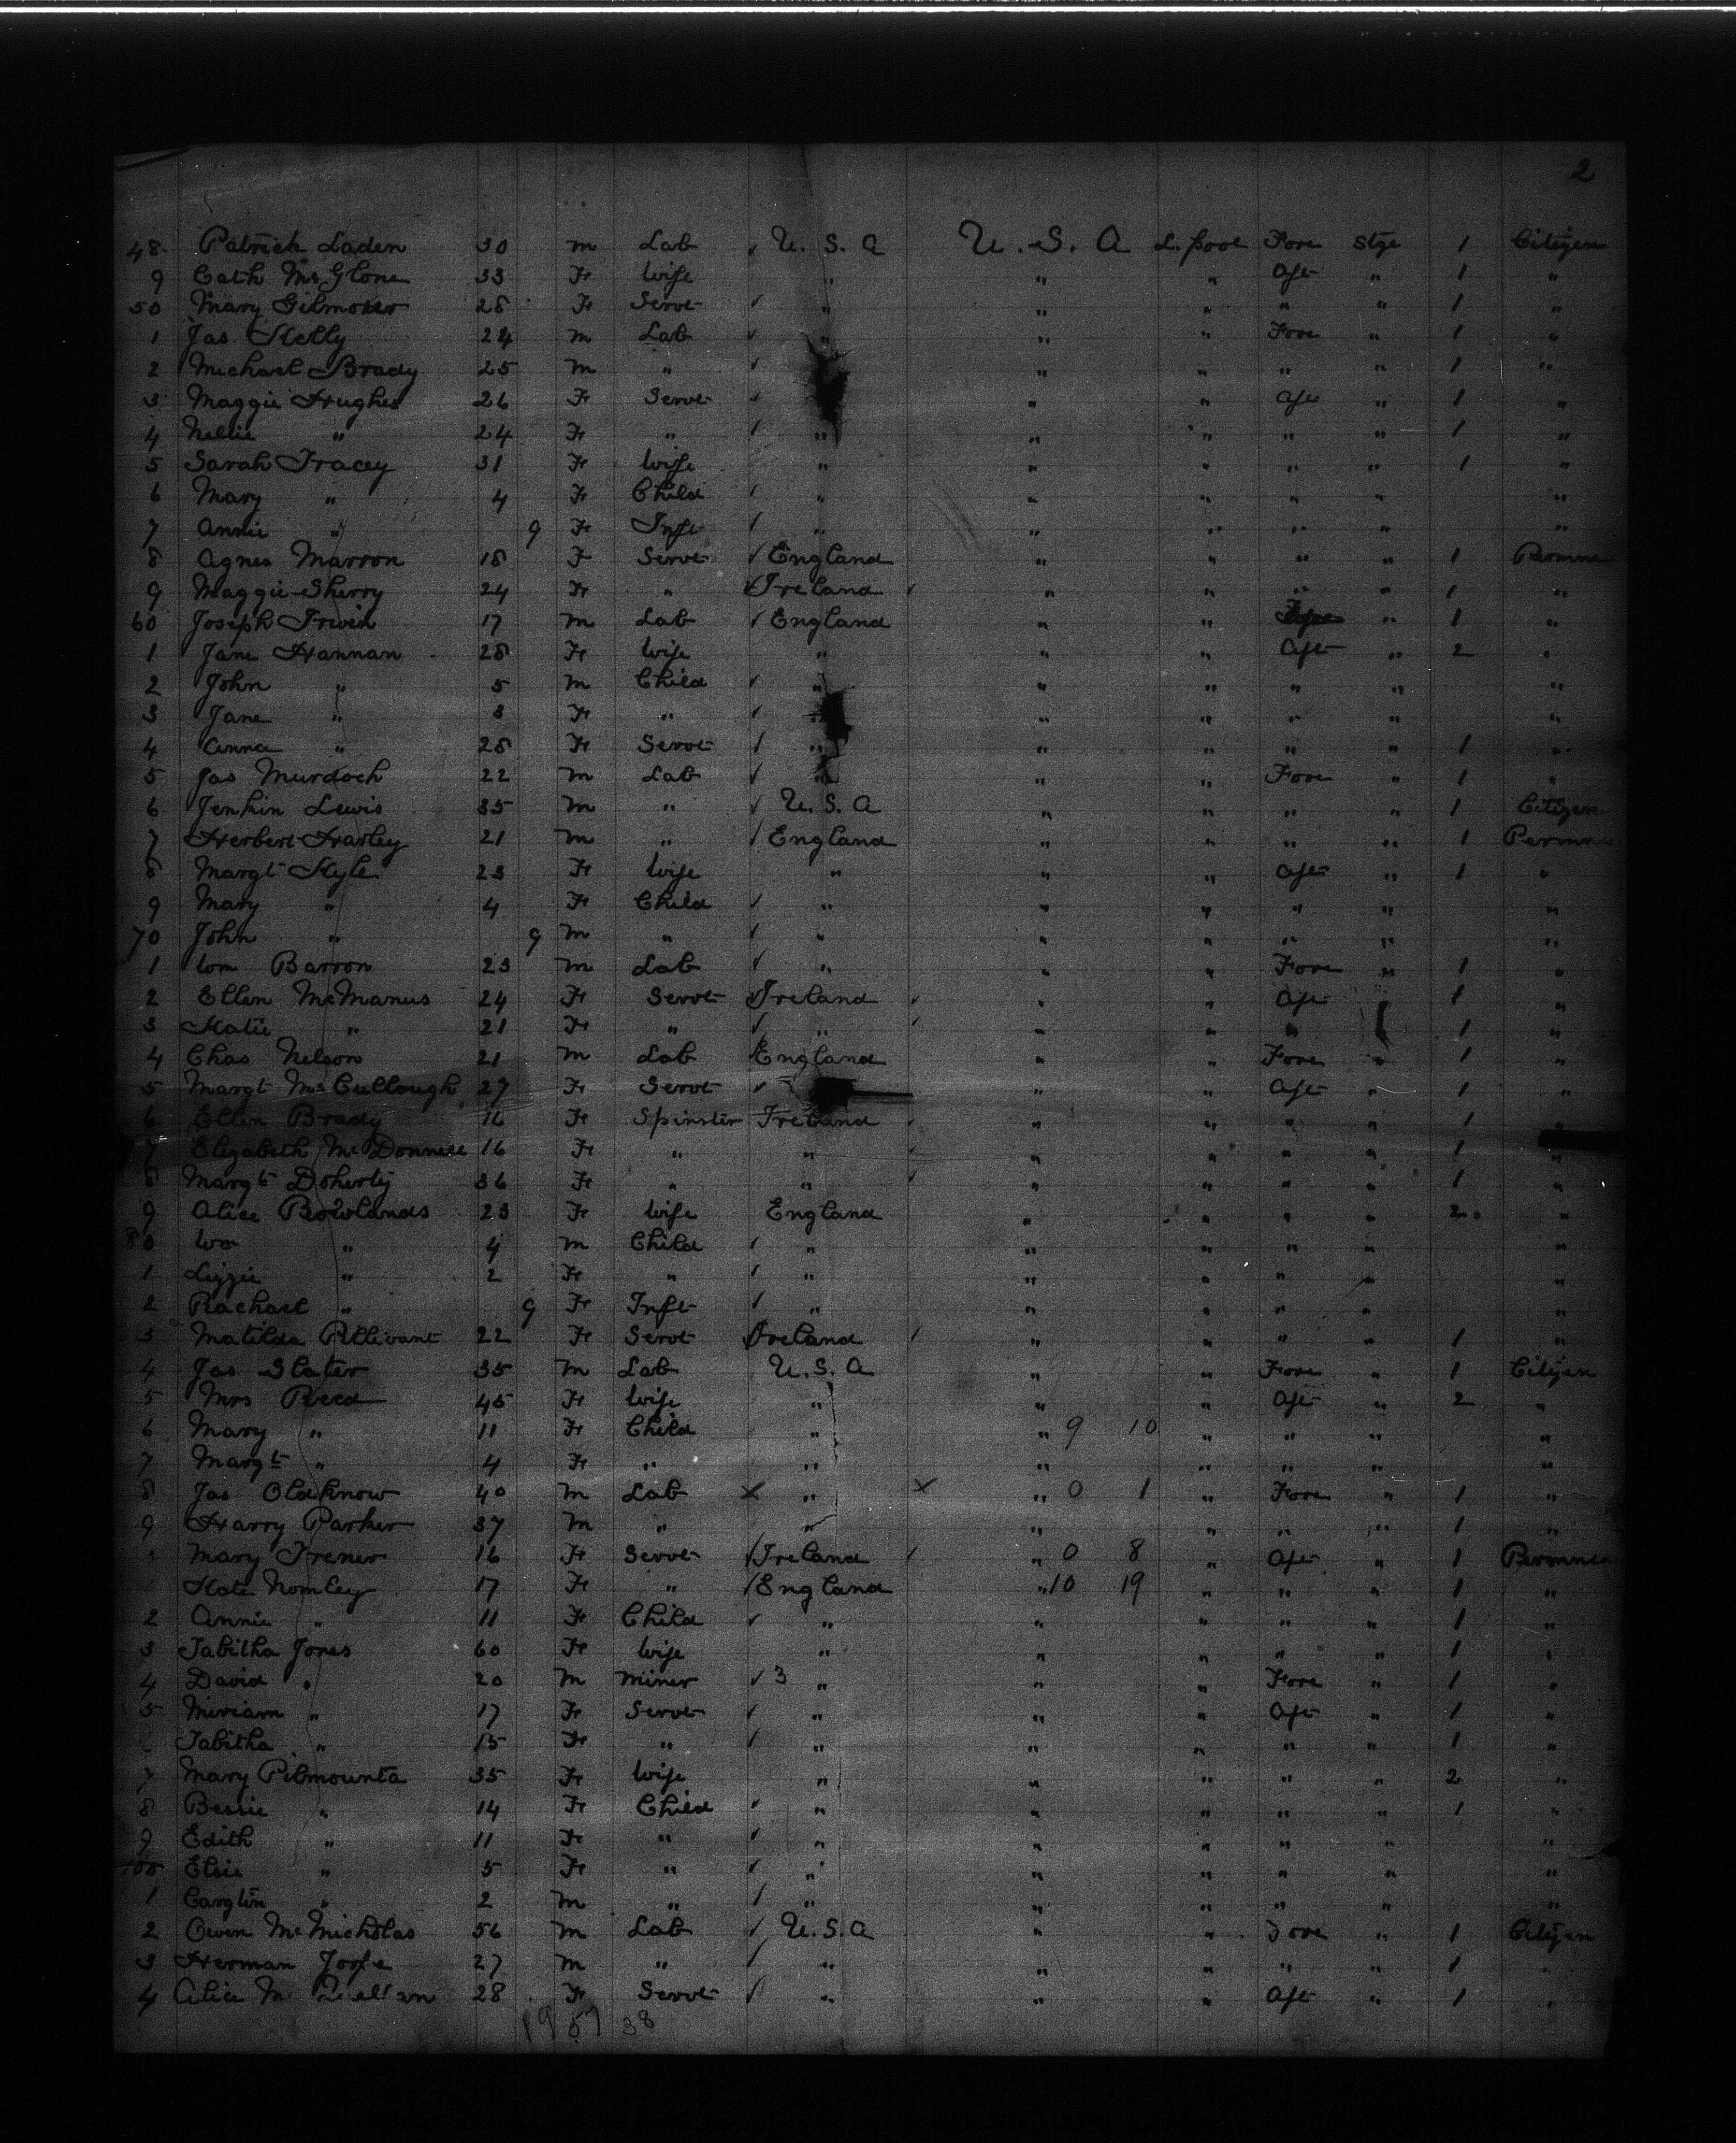 2
48 Patrick Laden 30 m Lab U. S. A U. S. A L. pool Fore Stge 1 Citizen
9 Cath McGlone 33 Fe Wife " " " Aft " 1 "
50 Mary Gilmore 28 Fe Servt " " " " " 1 "
1 Jas Kelly 24 m Lab " " " Fore " 1 "
2 Michael Brady 25 m " " " " " 1 "
3 Maggie Hughes 26 Fe Servt " " Aft " 1 "
4 Nellie " 24 Fe " " " " " " 1 "
5 Sarah Tracey 31 Fe Wife " " " " " 1 "
6 Mary " 4 Fe Child " " " " " "
7 Annie " 9 Fe Inft " " " " " "
8 Agnes Marron 18 F Servt England " " " " 1
9 Maggie Sherry 24 Fe " Ireland " " " " 1 "
60 Joseph Irwin 17 m Lab England " " " 1 "
1 Jane Hannan 28 Fe Wife " " " Aft " 2 "
2 John " 5 m Child " " " " " "
3 Jane " 3 Fe " " " " " "
4 Anna " 28 Fe Servt " " " " " 1 "
5 Jas Murdoch 22 m Lab " " " Fore " 1 "
6 Jenkin Lewis 35 m " U. S. A " " " " 1 Citizen
7 Herbert Harley 21 m " England " " " " 1
8 Margt Kyle 23 Fe Wife " " " Aft " 1 "
9 Mary " 4 Fe Child " " " " " "
70 John " 9 m " " " " " " "
1 Wm Barron 23 m Lab " " " Fore " 1 "
2 Ellen McManus 24 Fe Servt Ireland " " Aft 1 "
3 Katie " 21 Fe " " " " " 1 "
4 Chas Nelson 21 m Lab England " " Fore " 1 "
5 Margt McCullough 27 Fe Servt " " Aft " 1 "
6 Ellen Brady 16 Fe Spinster Ireland " " " " 1 "
7 Elizabeth McDonnell 16 Fe " " " " " " 1 "
8 Margt Doherty 36 Fe " " " " " " 1 "
9 Alice Rowlands 23 Fe Wife England " " " " 2 "
80 Wm " 4 m Child " " " " " "
1 Lizzie " 2 Fe " " " " " " "
2 Rachael " 9 Fe Inft " " " " " "
3 Matilda Pillivant 22 Fe Servt Ireland " " " " 1 "
4 Jas Slater 35 m Lab U. S. A " " Fore " 1 Citizen
5 Mrs Reed 45 Fe Wife " " " Aft " 2 "
6 Mary " 11 Fe Child " " 9 10 " " " "
7 Margt " 4 Fe " " " " " " "
8 Jas Oldknow 40 m Lab x " x " 0 1 " Fore " 1 "
9 Harry Parker 37 m " " " " " " 1 "
Mary Trener 16 Fe Servt Ireland " 0 8 " Aft " 1
Kate Nomley 17 Fe " England " 10 19 " " " 1 "
2 Annie " 11 Fe Child " " " " " 1 "
3 Tabitha Jones 60 Fe Wife " " " " " 1 "
4 David " 20 m Miner 3 " " " Fore " 1 "
5 Miriam " 17 Fe Servt " " " Aft " 1 "
Tabitha " 15 Fe " " " " " " 1 "
7 Mary Pilmounta 35 Fe Wife " " " " " 2 "
8 Bessie " 14 Fe Child " " " " " 1 "
9 Edith " 11 Fe " " " " " " "
100 Elsie " 5 Fe " " " " " " "
1 " 2 m " " " " " " "
2 Owen McNicholas 56 m Lab U. S. A " " Fore " 1 Citizen
3 Herman 27 m " " " " " " 1 "
4 Alice 28 Fe Servt " " " Aft " 1 "
19 57 38